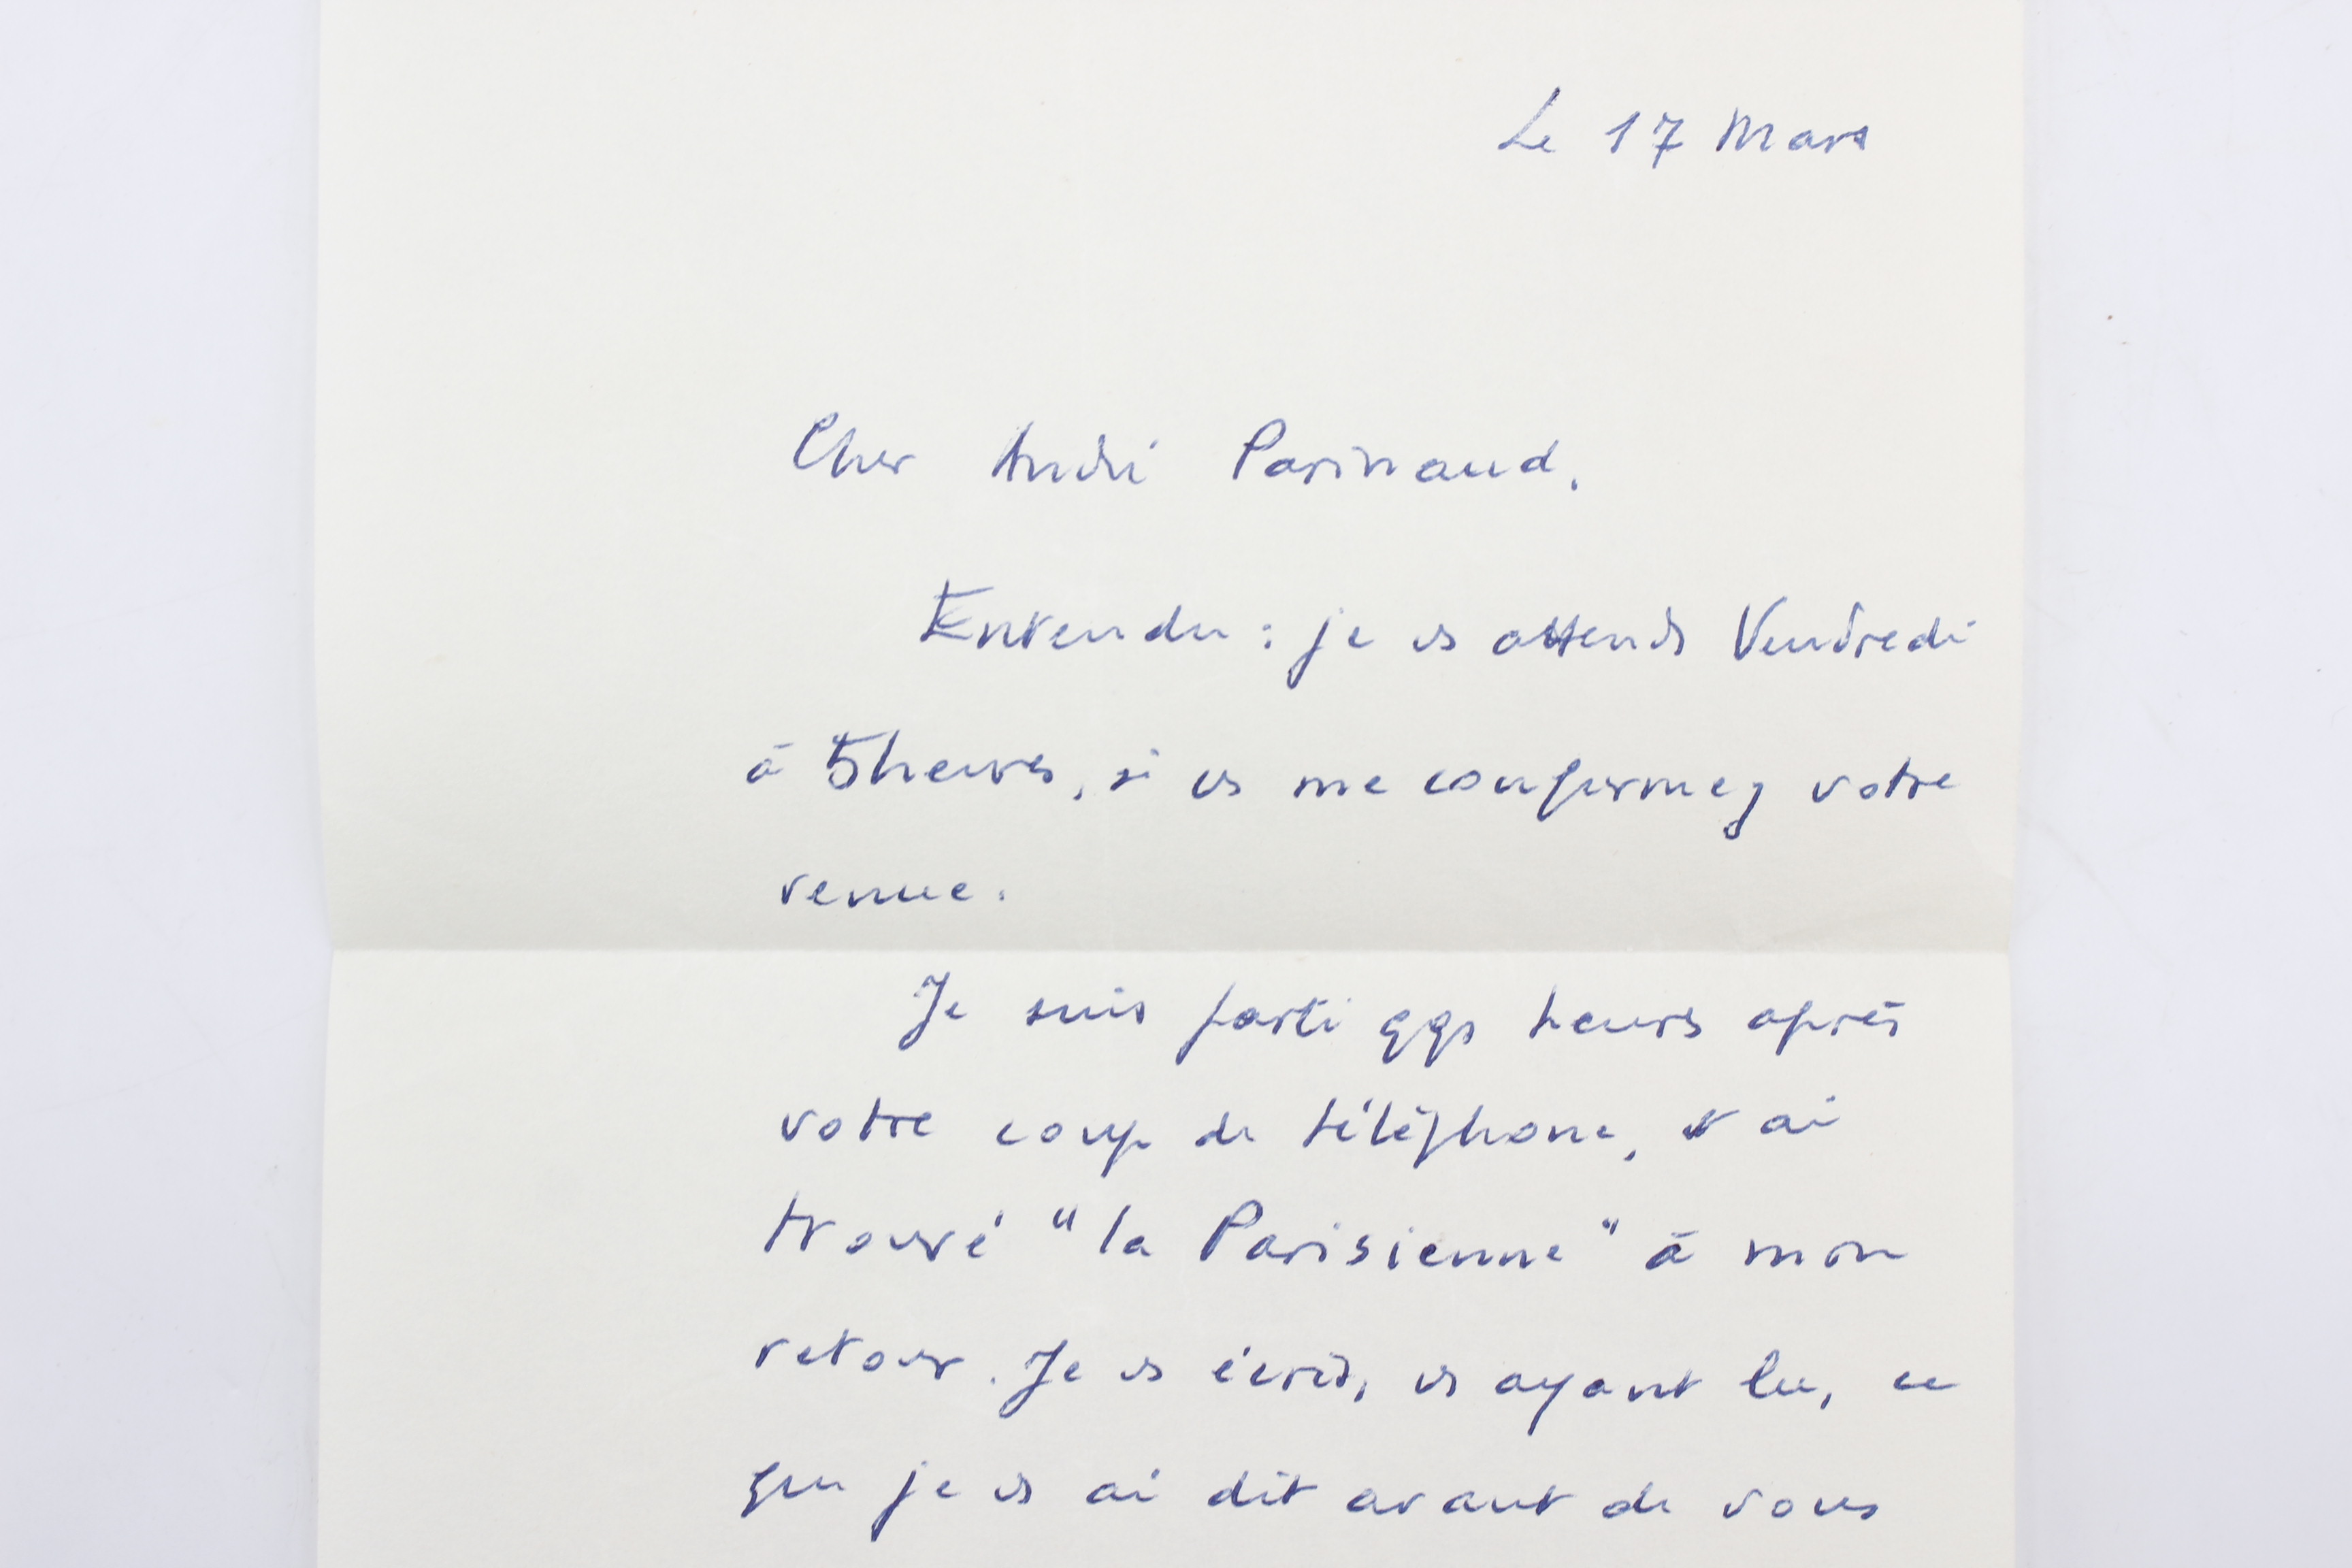 Le 17 Mars
Cher André Parinaud,
Entendu : je vs attends Vendredi
à 5 heures, si vs me confirmez votre
venue.
Je suis parti qqs heures après
votre coup de téléphone, et ai
trouvé "la Parisienne" à mon
retour. Je vs écris, vs ayant lu, ce
que je vs ai dit avant de vous